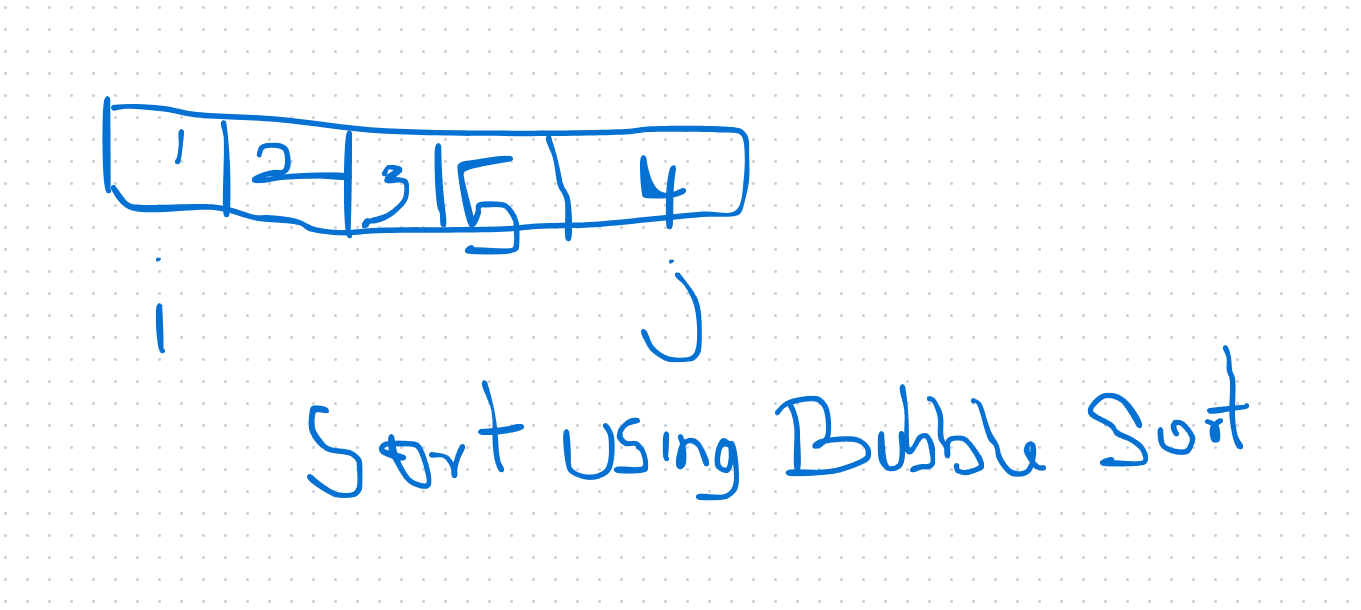 1 2 3 5 4
i j
Sort using Bubble Sort